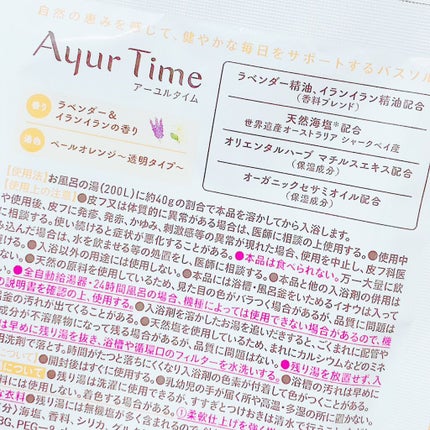 自然の恵みを感じて、健やかな毎日をサポートするバスソル
Ayur Time
アーユルタイム
香り ラベンダー＆
イランイランの香り
湯色 ペールオレンジ〜透明タイプ〜
ラベンダー精油、イランイラン精油配合
（香料ブレンド）
天然海塩*配合
世界遺産オーストラリア シャークベイ産
オリエンタルハーブ マチルスエキス配合
（保湿成分）
オーガニックセサミオイル配合
（保湿成分）
【使用法】お風呂の湯(200L)に約40gの割合で本品を溶かしてから入浴します。
【使用上の注意】●皮フ又は体質的に異常がある場合は、医師に相談の上使用する。●使用中
や使用後、皮フに発疹、発赤、かゆみ、刺激感等の異常が現れた場合、使用を中止し、皮フ科医
に相談する。使い続けると症状が悪化することがある。●本品は食べられない。万一大量に飲
み込んだ場合は、水を飲ませる等の処置をし、医師に相談する。●本品と他の入浴剤の併用は
●入浴以外の用途には使用しない。●本品には浴槽・風呂釜をいためるイオウは入って
●天然の原料を使用しているため、見た目の色がバラつく場合があるが、品質に問題は
●全自動給湯器・24時間風呂の場合、機種によっては使用できない場合があるので、機
の説明書を確認の上、使用する。●入浴剤を溶かしたお湯を追いだきすると、ごくまれに配管や
釜の汚れが出てくることがある。●天然塩を使用しているため、まれにカルシウムなどのミネ
成分が不溶解物になって残る場合があるが、品質には問題はない。●残り湯を放置せず、入
は早めに残り湯を抜き、浴槽や循環口のフィルターを水洗いする。
洗剤で落とす。時間がたつと落ちにくくなり入浴剤の色素が付着して色がつくことがある。
●残り湯は洗濯に使用できるが、すすぎとつけおきは清水で行う
●浴槽の汚れは早めに
●乳幼児の手が届く所や高温・多湿の所に置かない。
●残り湯には無機塩が多く含まれるので
①柔軟仕上げを強く
海塩、香料、シリカ、